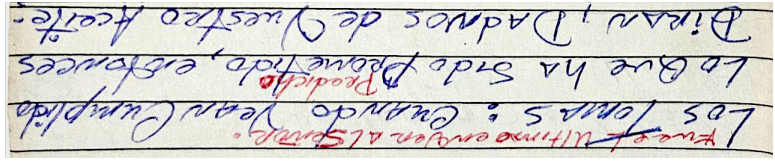 Fue el Ultimo en Ver al Señor.
Los Tomas: Cuando Vean Cumplido
Predicho
Lo Que ha Sido Prometido, entonces
Diran, Dadnos de Vuestro Aceite: